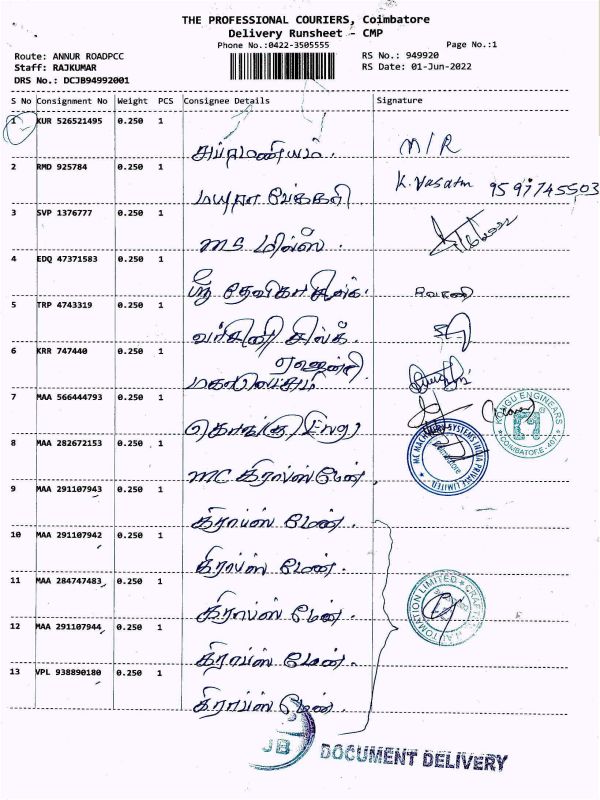 THE PROFESSIONAL COURIERS, Coimbatore
Delivery Runsheet - CMP
Phone No.:0422-3505555
Page No.:1
Route: ANNUR ROADPCC
RS No.: 949920
Staff: RAJKUMAR
RS Date: 01-Jun-2022
DRS No.: DCJB94992001
S No Consignment No Weight PCS Consignee Details Signature
1 KUR 526521495 0.250 1
சுப்ரமணியம். N/R
2 RMD 925784 0.250 1
K. Vasatm 9597745503
3 SVP 1376777 0.250 1
MS மில்ஸ்.
4 EDQ 47371583 0.250 1
ஸ்ரீ தேவிகா சில்க். ரேவதி
5 TRP 4743319 0.250 1
வர்சினி சில்க்.
6 KRR 747440 0.250 1
ஏஜன்சி
மகாலிங்கம்
7 MAA 566444793 0.250 1
கொங்கு Engg
KONGU ENGINEERS
COIMBATORE - 407
8 MAA 282672153 0.250 1
MC MACHINERY SYSTEMS INDIA PRIVATE LIMITED
Coimbatore
MC கிராப்ஸ்மேன்.
9 MAA 291107943 0.250 1
கிராப்ஸ் மேன்.
10 MAA 291107942 0.250 1
கிராப்ஸ் மேன்.
11 MAA 284747483 0.250 1
கிராப்ஸ் மேன்.
AUTOMATION LIMITED
12 MAA 291107944 0.250 1
கிராப்ஸ் மேன்.
13 VPL 938890180 0.250 1
கிராப்ஸ் மேன்.
JB DOCUMENT DELIVERY